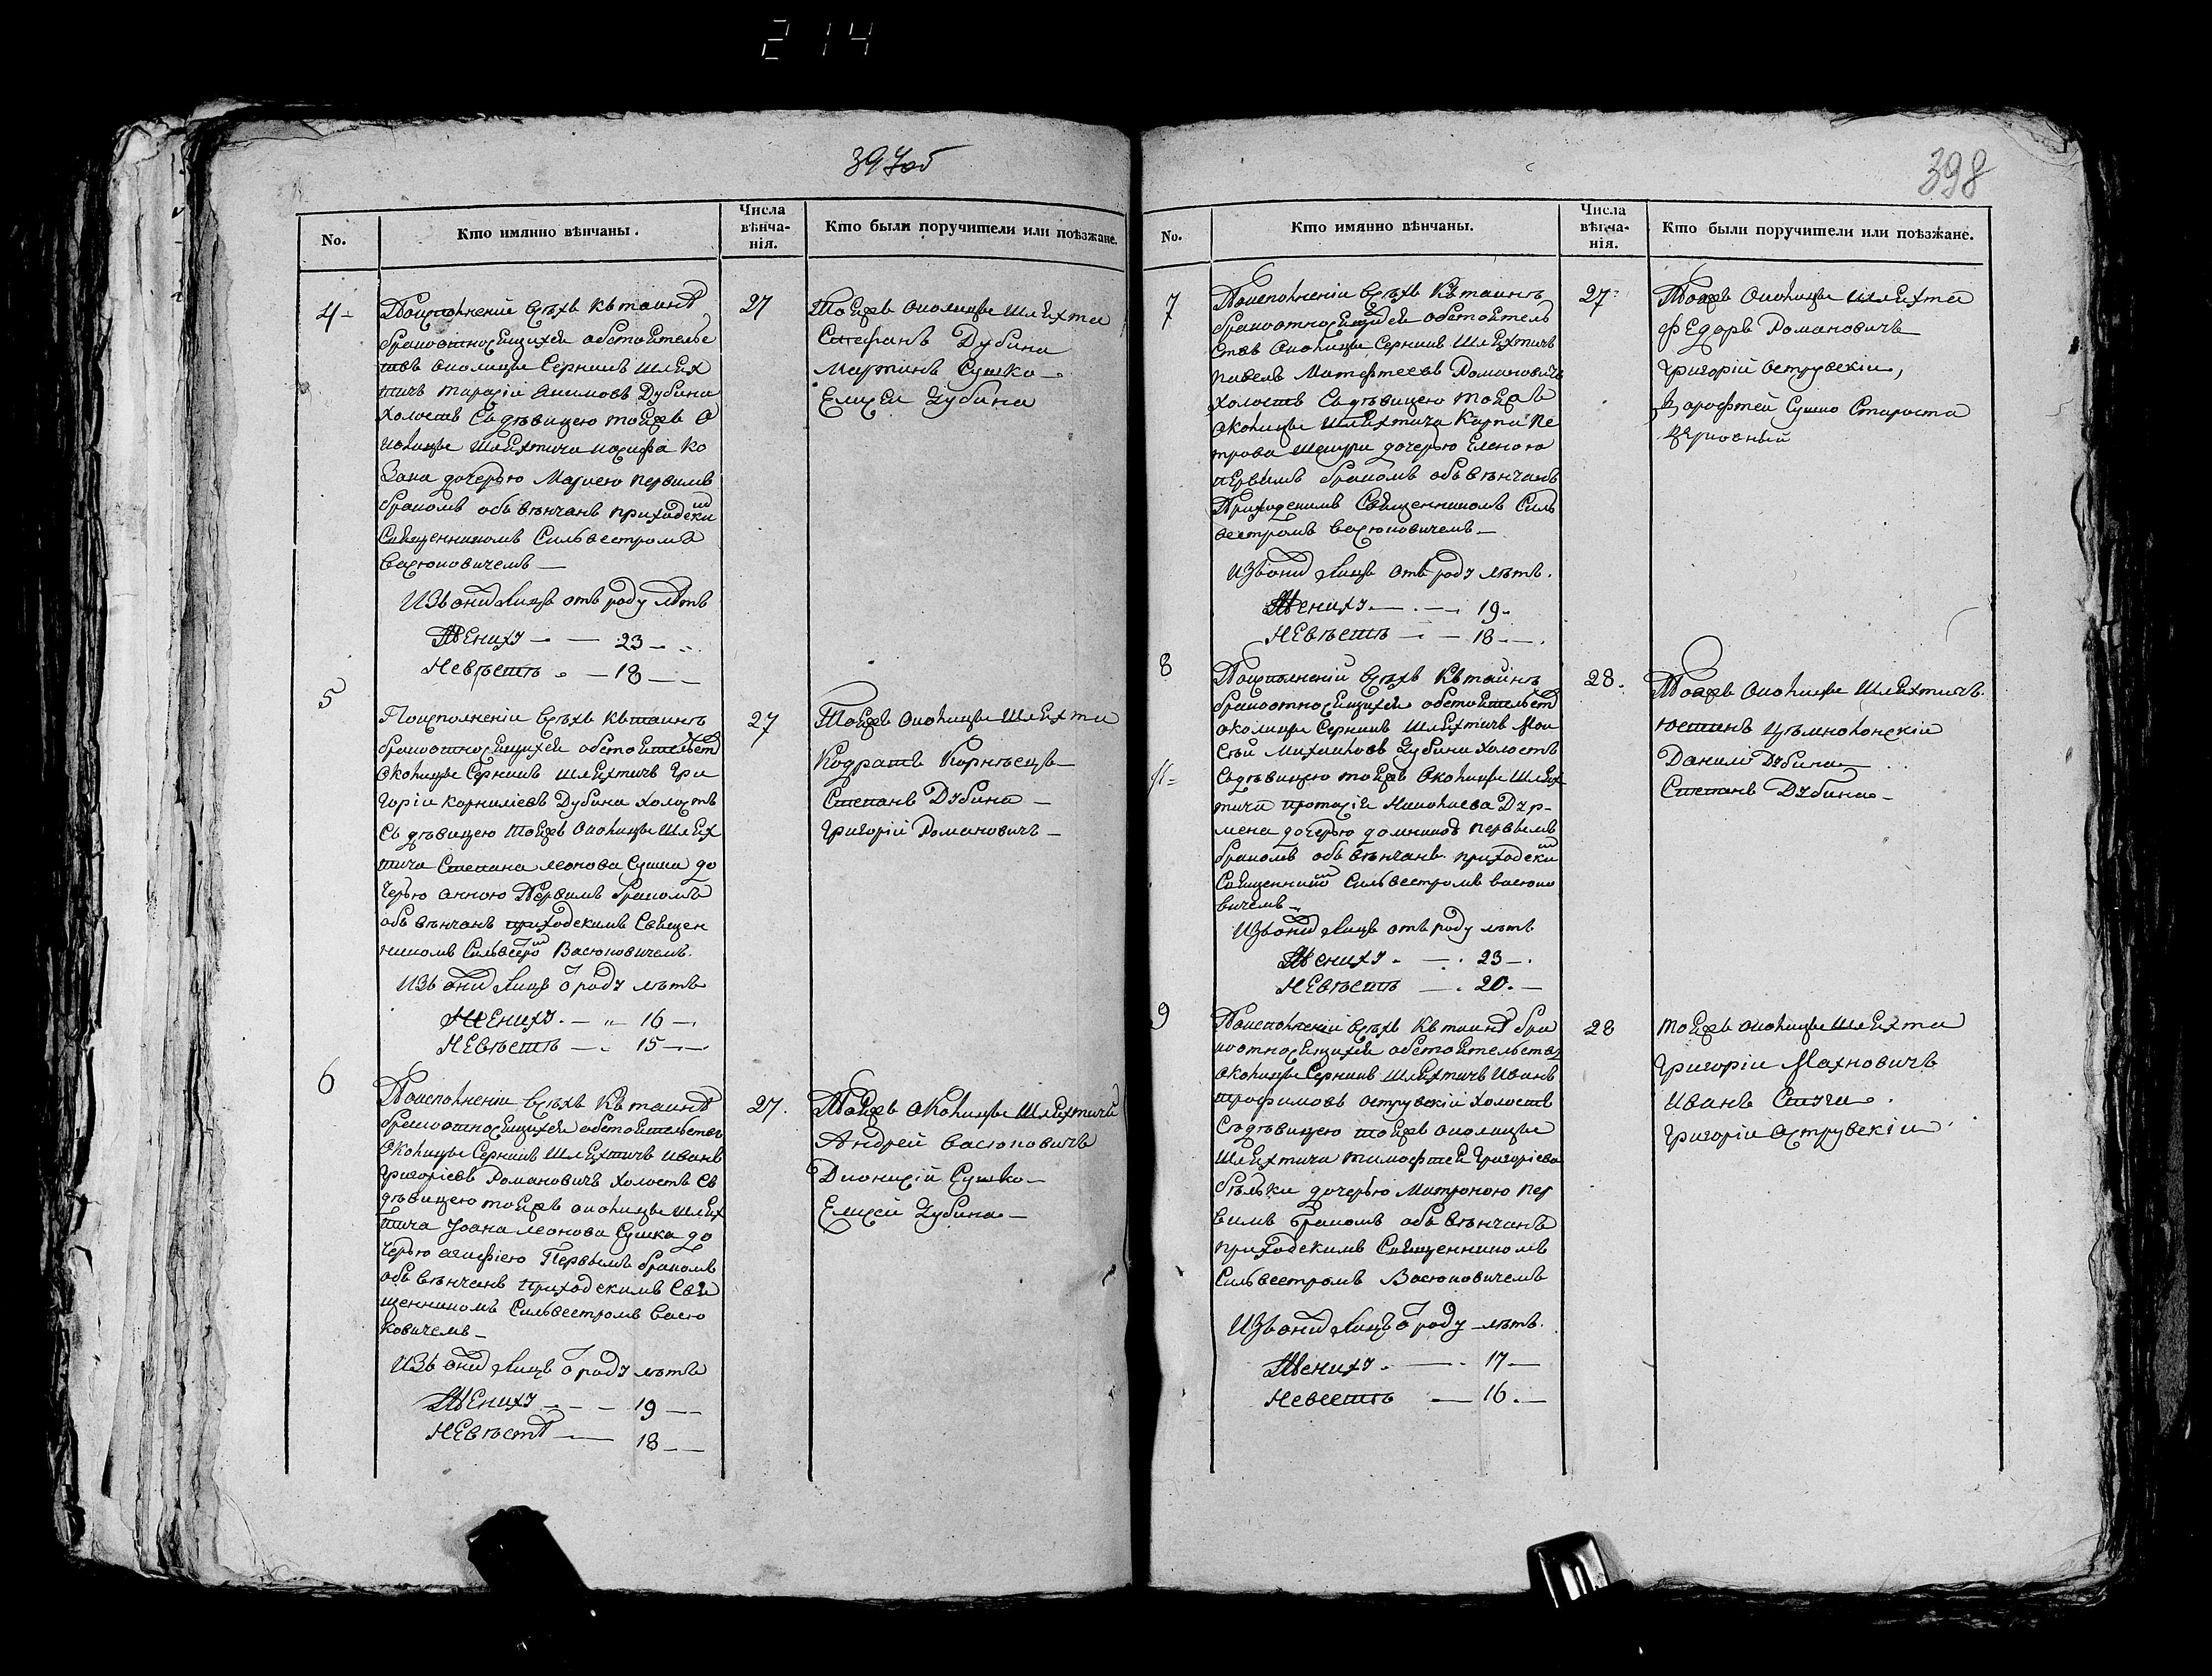 214
397об
No.
Кто имянно вѣнчаны.
Числа
вѣнча-
нія.
Кто были поручители или поѣзжане.
4
Поисполненіи всѣхъ къ таинѣ
брака относящихся обстоятельс
твъ околицы Серкшъ шлях
тичъ Тарасій Якимовъ Дубина
холостъ съ дѣвицею тоежъ о
колицы шляхтича Иосифа Ко
зака дочерью Мариею первымъ
бракомъ обвѣнчанъ приходски
Священникомъ Сильвестромъ
Васюковичемъ
Изъ онихъ лицъ отъ роду лѣтъ
Жениху 23
Невѣстѣ 18
27
Тоежъ околицы шляхта
Стефанъ Дубина
Мартинъ Сушко
Елисей Дубина
5
Поисполненіи всѣхъ къ таинѣ
брака относящихся обстоятельст
околицы Серкшъ шляхтичъ Гри
горій Корниліевъ Дубина холостъ
съ дѣвицею тоежъ околицы шлях
тича Степана Леонова Сушка до
черью Анною Первымъ бракомъ
обвѣнчанъ приходскимъ Священ
никомъ Сильвестро Васюковичемъ.
Изъ онихъ лицъ о роду лѣтъ
Жениху 16
Невѣстѣ 15
27
Тоежъ околицы шляхта
Кодратъ Корнѣецъ
Степанъ Дубина
Григорій Романовичъ
6
Поисполненіи всѣхъ къ таинѣ
брака относящихся обстоятельствъ
околицы Серкшъ шляхтичъ Иванъ
Григоріевъ Романовичъ холостъ съ
дѣвицею тоежъ околицы шлях
тича Іоана Леонова Сушка до
черью Агафіею Первымъ бракомъ
обвѣнчанъ приходскимъ Свя
щенникомъ Сильвестромъ Васю
ковичемъ
Изъ онихъ лицъ о роду лѣтъ
Жениху 19
Невѣстѣ 18
27.
Тоежъ околицы шляхтичи
Андрей Васюковичъ
Дионисій Сушко
Елисей Дубина
398
No.
Кто имянно вѣнчаны.
Числа
вѣнча-
нія.
Кто были поручители или поѣзжане.
7
Поисполненіи всѣхъ къ таинѣ
брака относящихся обстоятель
ствъ околицы Серкшъ шляхтичъ
Павелъ Матфеевъ Романовичъ
холостъ съ дѣвицею тоежъ
околицы шляхтича Карпа Пе
трова дочерью Еленою
первымъ бракомъ обвѣнчанъ
Приходскимъ Священникомъ Силь
вестромъ Васюковичемъ
Изъ онихъ лицъ отъ роду лѣтъ.
Жениху 19
Невѣстѣ 18
27
Тоежъ околицы шляхта
Федоръ Романовичъ
Григорій Острувскій,
Дорофтей Сушко Староста
церковный
8
Поисполненіи всѣхъ къ таинѣ
брака относящихся обстоятельст
околицы Серкшъ шляхтичъ Мои
сей Михайловъ Дубина холостъ
съ дѣвицею тоежъ околицы шлях
тича Протасія Николаева Дур-
мена дочерью Домникою первымъ
бракомъ обвѣнчанъ приходски
Священнико Сильвестромъ Васюко
вичемъ
Изъ онихъ лицъ отъ роду лѣтъ
Жениху 23
Невѣстѣ 20
28.
Тоежъ околицы шляхтичъ
Юстинъ
Данило Дубина
Степанъ Дубина
9
Поисполненіи всѣхъ къ таинѣ бра
ка относящихся обстоятельствъ
околицы Серкшъ шляхтичъ Иванъ
Трофимовъ Острувскій холостъ
съ дѣвицею тоежъ околицы
шляхтича Тимофтея Григоріева
Бѣлька дочерью Матроною пер
вимъ бракомъ обвѣнчанъ
приходскимъ Священникомъ
Сильвестромъ Васюковичемъ
Изъ онихъ лицъ о роду лѣтъ.
Жениху 17
Невестѣ 16
28
Тоежъ околицы шляхта
Григорій Махновичъ
Иванъ
Григорій Острувскій